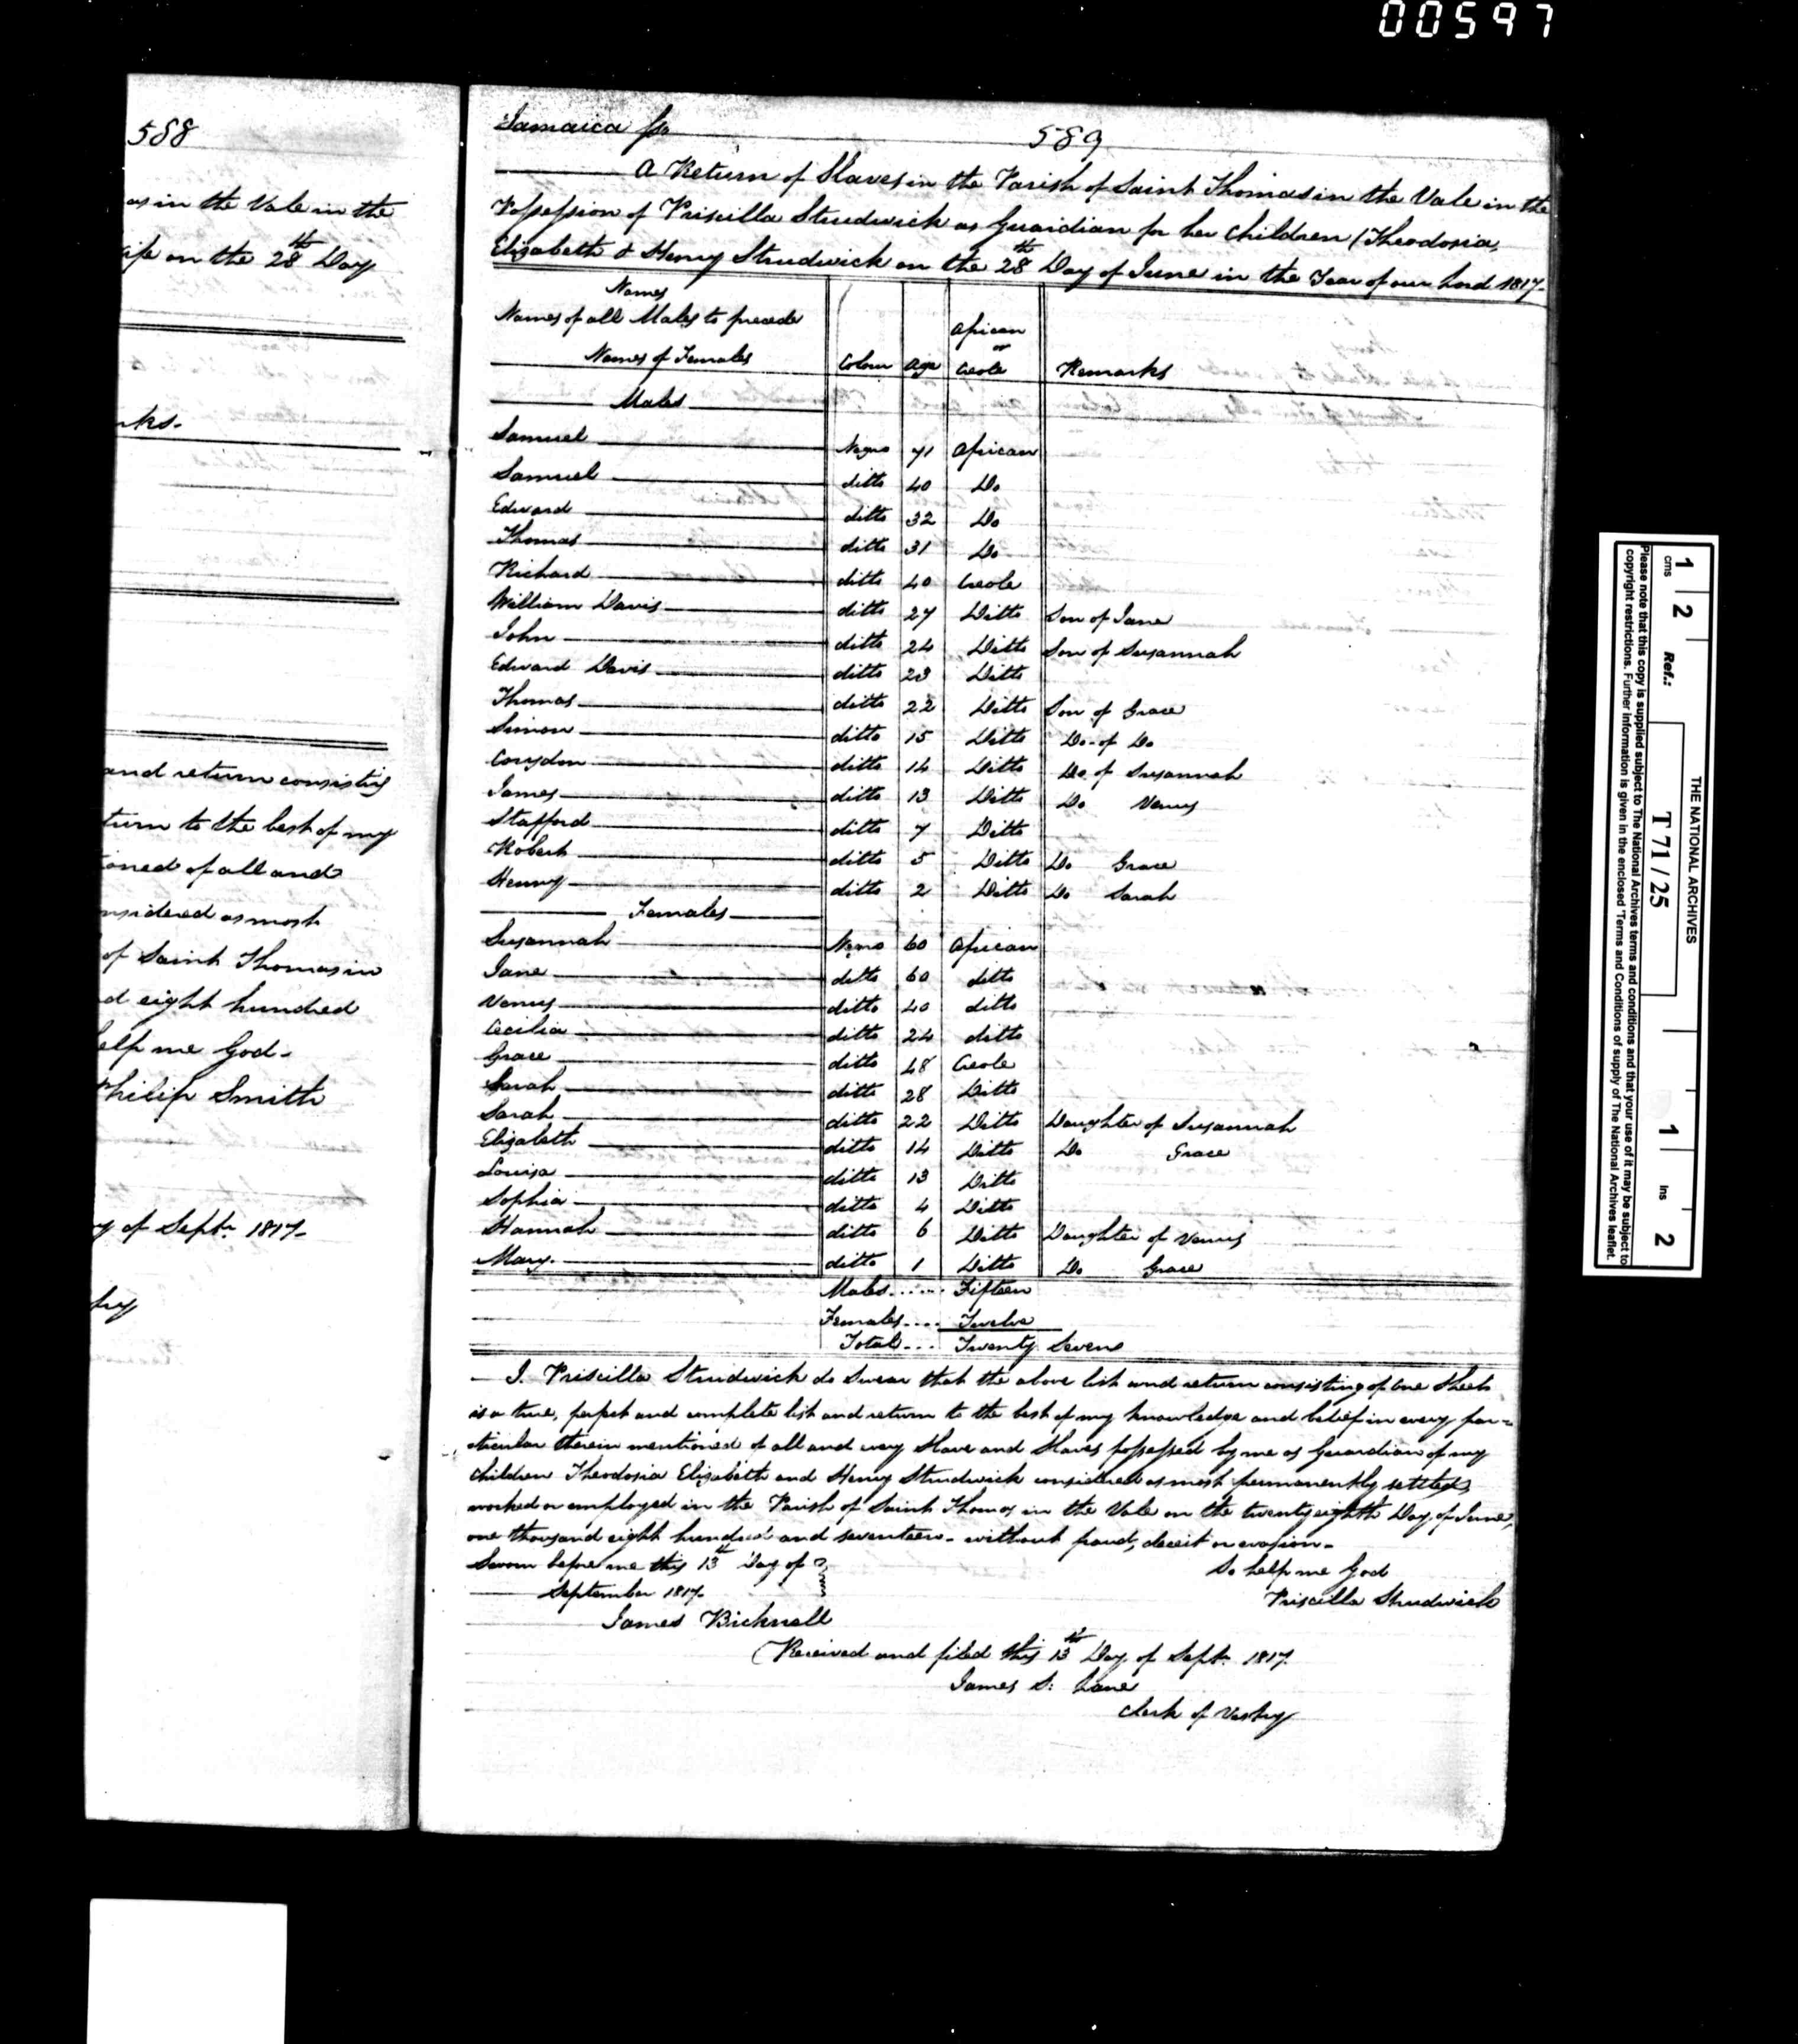 00597
588
as in the Vale in the
on the 28th Day
and return consisting
turn to the best of my
of all and
nsidered as most
of Saint Thomas in
d eight hundred
elp me God -
Philip Smith
y of Septr. 1817 -
Jamaica Ss
589
A Return of Slaves in the Parish of Saint Thomas in the Vale in the
Possession of Priscilla Strudwick as Guardian for her Children (Theodosia,
Elizabeth & Henry Strudwick on the 28th Day of June in the Year of our Lord 1817 -
Names
Names of all Males to precede
Names of Females
Colour Age African or Creole Remarks
Males
Samuel Negro 71 African
Samuel ditto 40 Do
Edward ditto 32 Do
Thomas ditto 31 Do
Richard ditto 40 Creole
William Davis ditto 27 Ditto Son of Jane
John ditto 24 Ditto Son of Susannah
Edward Davis ditto 23 Ditto
Thomas ditto 22 Ditto Son of Grace
Simon ditto 15 Ditto Do. of Do
Corydon ditto 14 Ditto Do of Susannah
James ditto 13 Ditto Do Venus
Stafford ditto 7 Ditto
Robert ditto 5 Ditto Do Grace
Henry ditto 2 Ditto Do Sarah
Females
Susannah Negro 60 African
Jane ditto 60 ditto
Venus ditto 40 ditto
Cecilia ditto 24 ditto
Grace ditto 48 Creole
Sarah ditto 28 Ditto
Sarah ditto 22 Ditto Daughter of Susannah
Elizabeth ditto 14 Ditto Do Grace
Louisa ditto 13 Ditto
Sophia ditto 4 Ditto
Hannah ditto 6 Ditto Daughter of Venus
Mary. ditto 1 Ditto Do Grace
Males ..... Fifteen
Females .... Twelve
Total ... Twenty Seven
I. Priscilla Strudwick do Swear that the above list and return consisting of One Sheet
is a true, perfect and complete list and return to the best of my knowledge and belief in every par=
ticular therein mentioned of all and every Slave and Slaves possessed by me as Guardian of my
Children Theodosia Elizabeth and Henry Strudwick considered as most permanently settled,
worked or employed in the Parish of Saint Thomas in the Vale on the twenty eighth Day of June,
one thousand eight hundred and seventeen - without fraud, deceit or evasion -
Sworn before me this 13th Day of
September 1817.
So help me God
Priscilla Strudwick
James Bicknell
Received and filed this 13th Day of Septr. 1817.
James S: Lane
Clerk of Vestry
THE NATIONAL ARCHIVES
Ref.: T 71/25
1 2 1 2
cms Ins
Please note that this copy is supplied subject to The National Archives terms and conditions and that your use of it may be subject to
copyright restrictions. Further information is given in the enclosed 'Terms and Conditions of supply of The National Archives' leaflet.